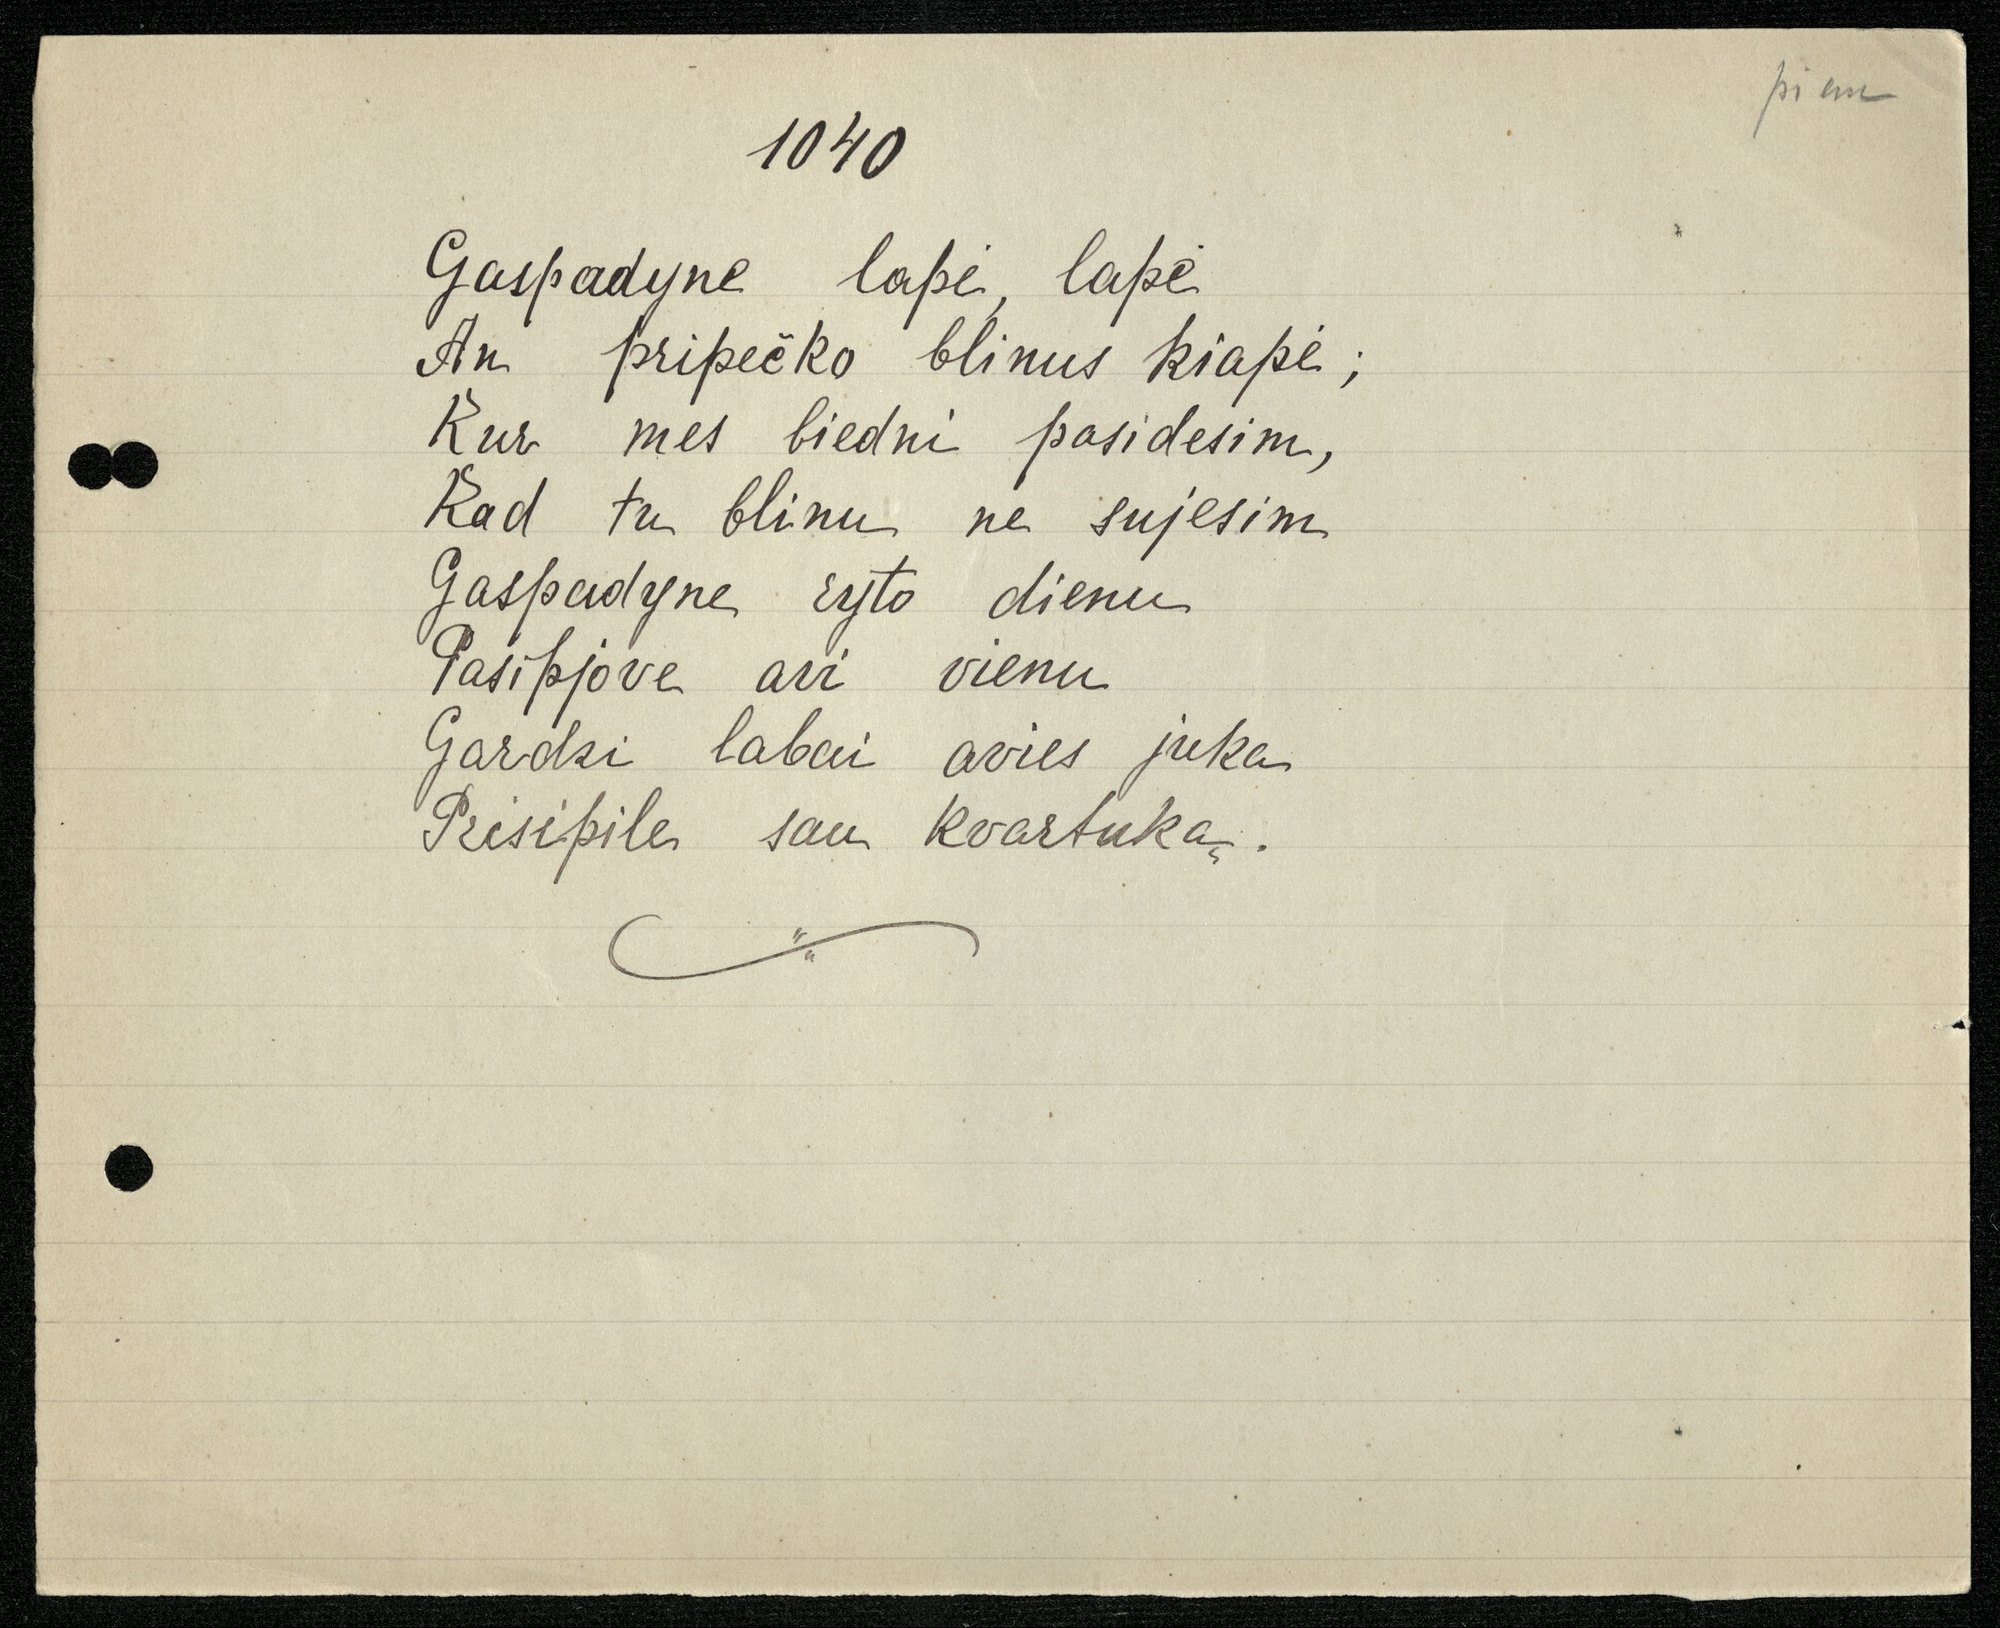 piem
1040
Gaspadyne lapė, lapė
An pripečko blinus kiapė;
Kur mes biedni pasidesim,
Kad tu blinu ne sujesim
Gaspadyne ryto dienu
Pasipjove avi vienu
Gardzi labai avies juka
Prisipile sau kvartuką.